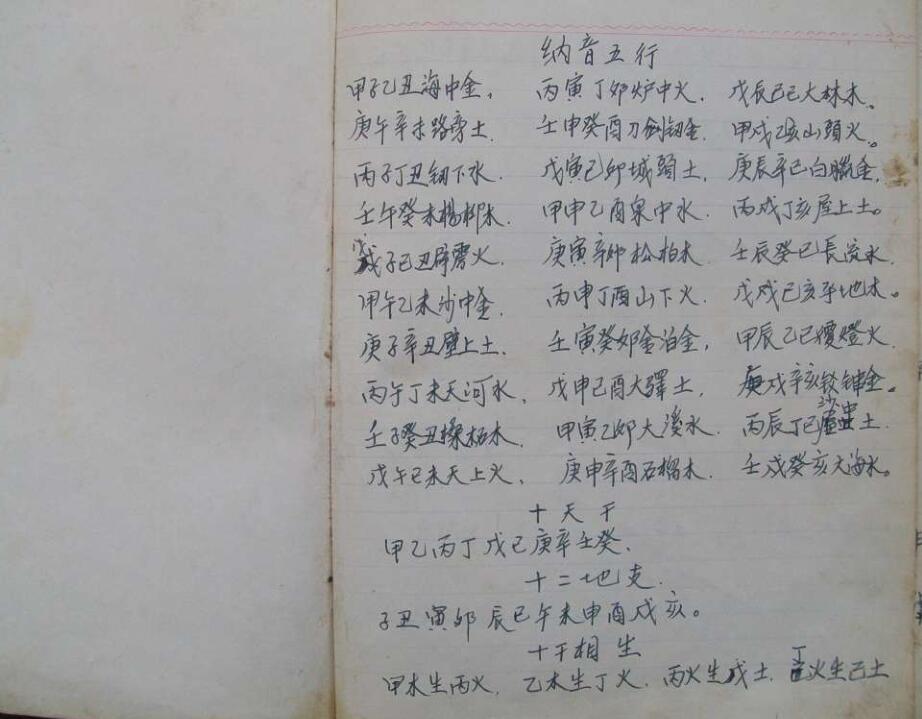 纳音五行
甲子乙丑海中金, 丙寅丁卯炉中火. 戊辰己巳大林木。
庚午辛未路旁土. 壬申癸酉刀劍釖金. 甲戌乙亥山頭火。
丙子丁丑釖下水. 戊寅己卯城頭土, 庚辰辛巳白臘金,
壬午癸未楊柳木. 甲申乙酉泉中水. 丙戌丁亥屋上土。
戊子己丑霹靂火. 庚寅辛卯松柏木 壬辰癸巳長流水
甲午乙未沙中金. 丙申丁酉山下火. 戊戌己亥平地木。
庚子辛丑壁上土. 壬寅癸卯金泊金, 甲辰乙巳覆燈火
丙午丁未天河水, 戊申己酉大驛土, 庚戌辛亥钗钏金。
壬子癸丑桑柘木. 甲寅乙卯大溪水. 丙辰丁巳沙中土.
戊午己未天上火, 庚申辛酉石榴木. 壬戌癸亥大海水。
十天干
甲乙丙丁戊己庚辛壬癸.
十二地支.
子丑寅卯辰巳午未申酉戌亥。
十干相生
甲木生丙火. 乙木生丁火. 丙火生戊土. 丁火生己土